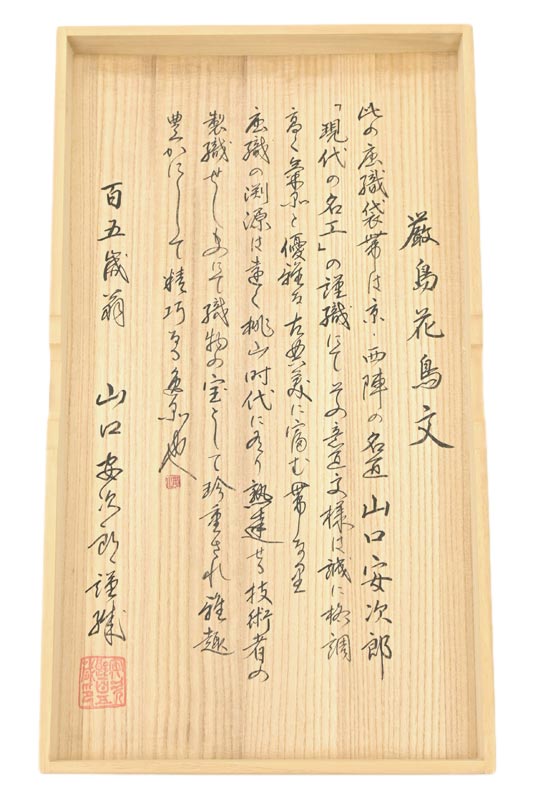 厳島花鳥文
此の唐織袋帯は京・西陣の名匠山口安次郎
「現代の名工」の謹織にてその意匠文様は誠に格調
高く気品と優雅な古典美に富む帯なり
唐織の渊源は遠く桃山時代に有り熟達せる技術者の
製織せしものにて織物の宝として珍重され雅趣
豊かにして精巧なる逸品也
百五歳翁 山口安次郎謹織